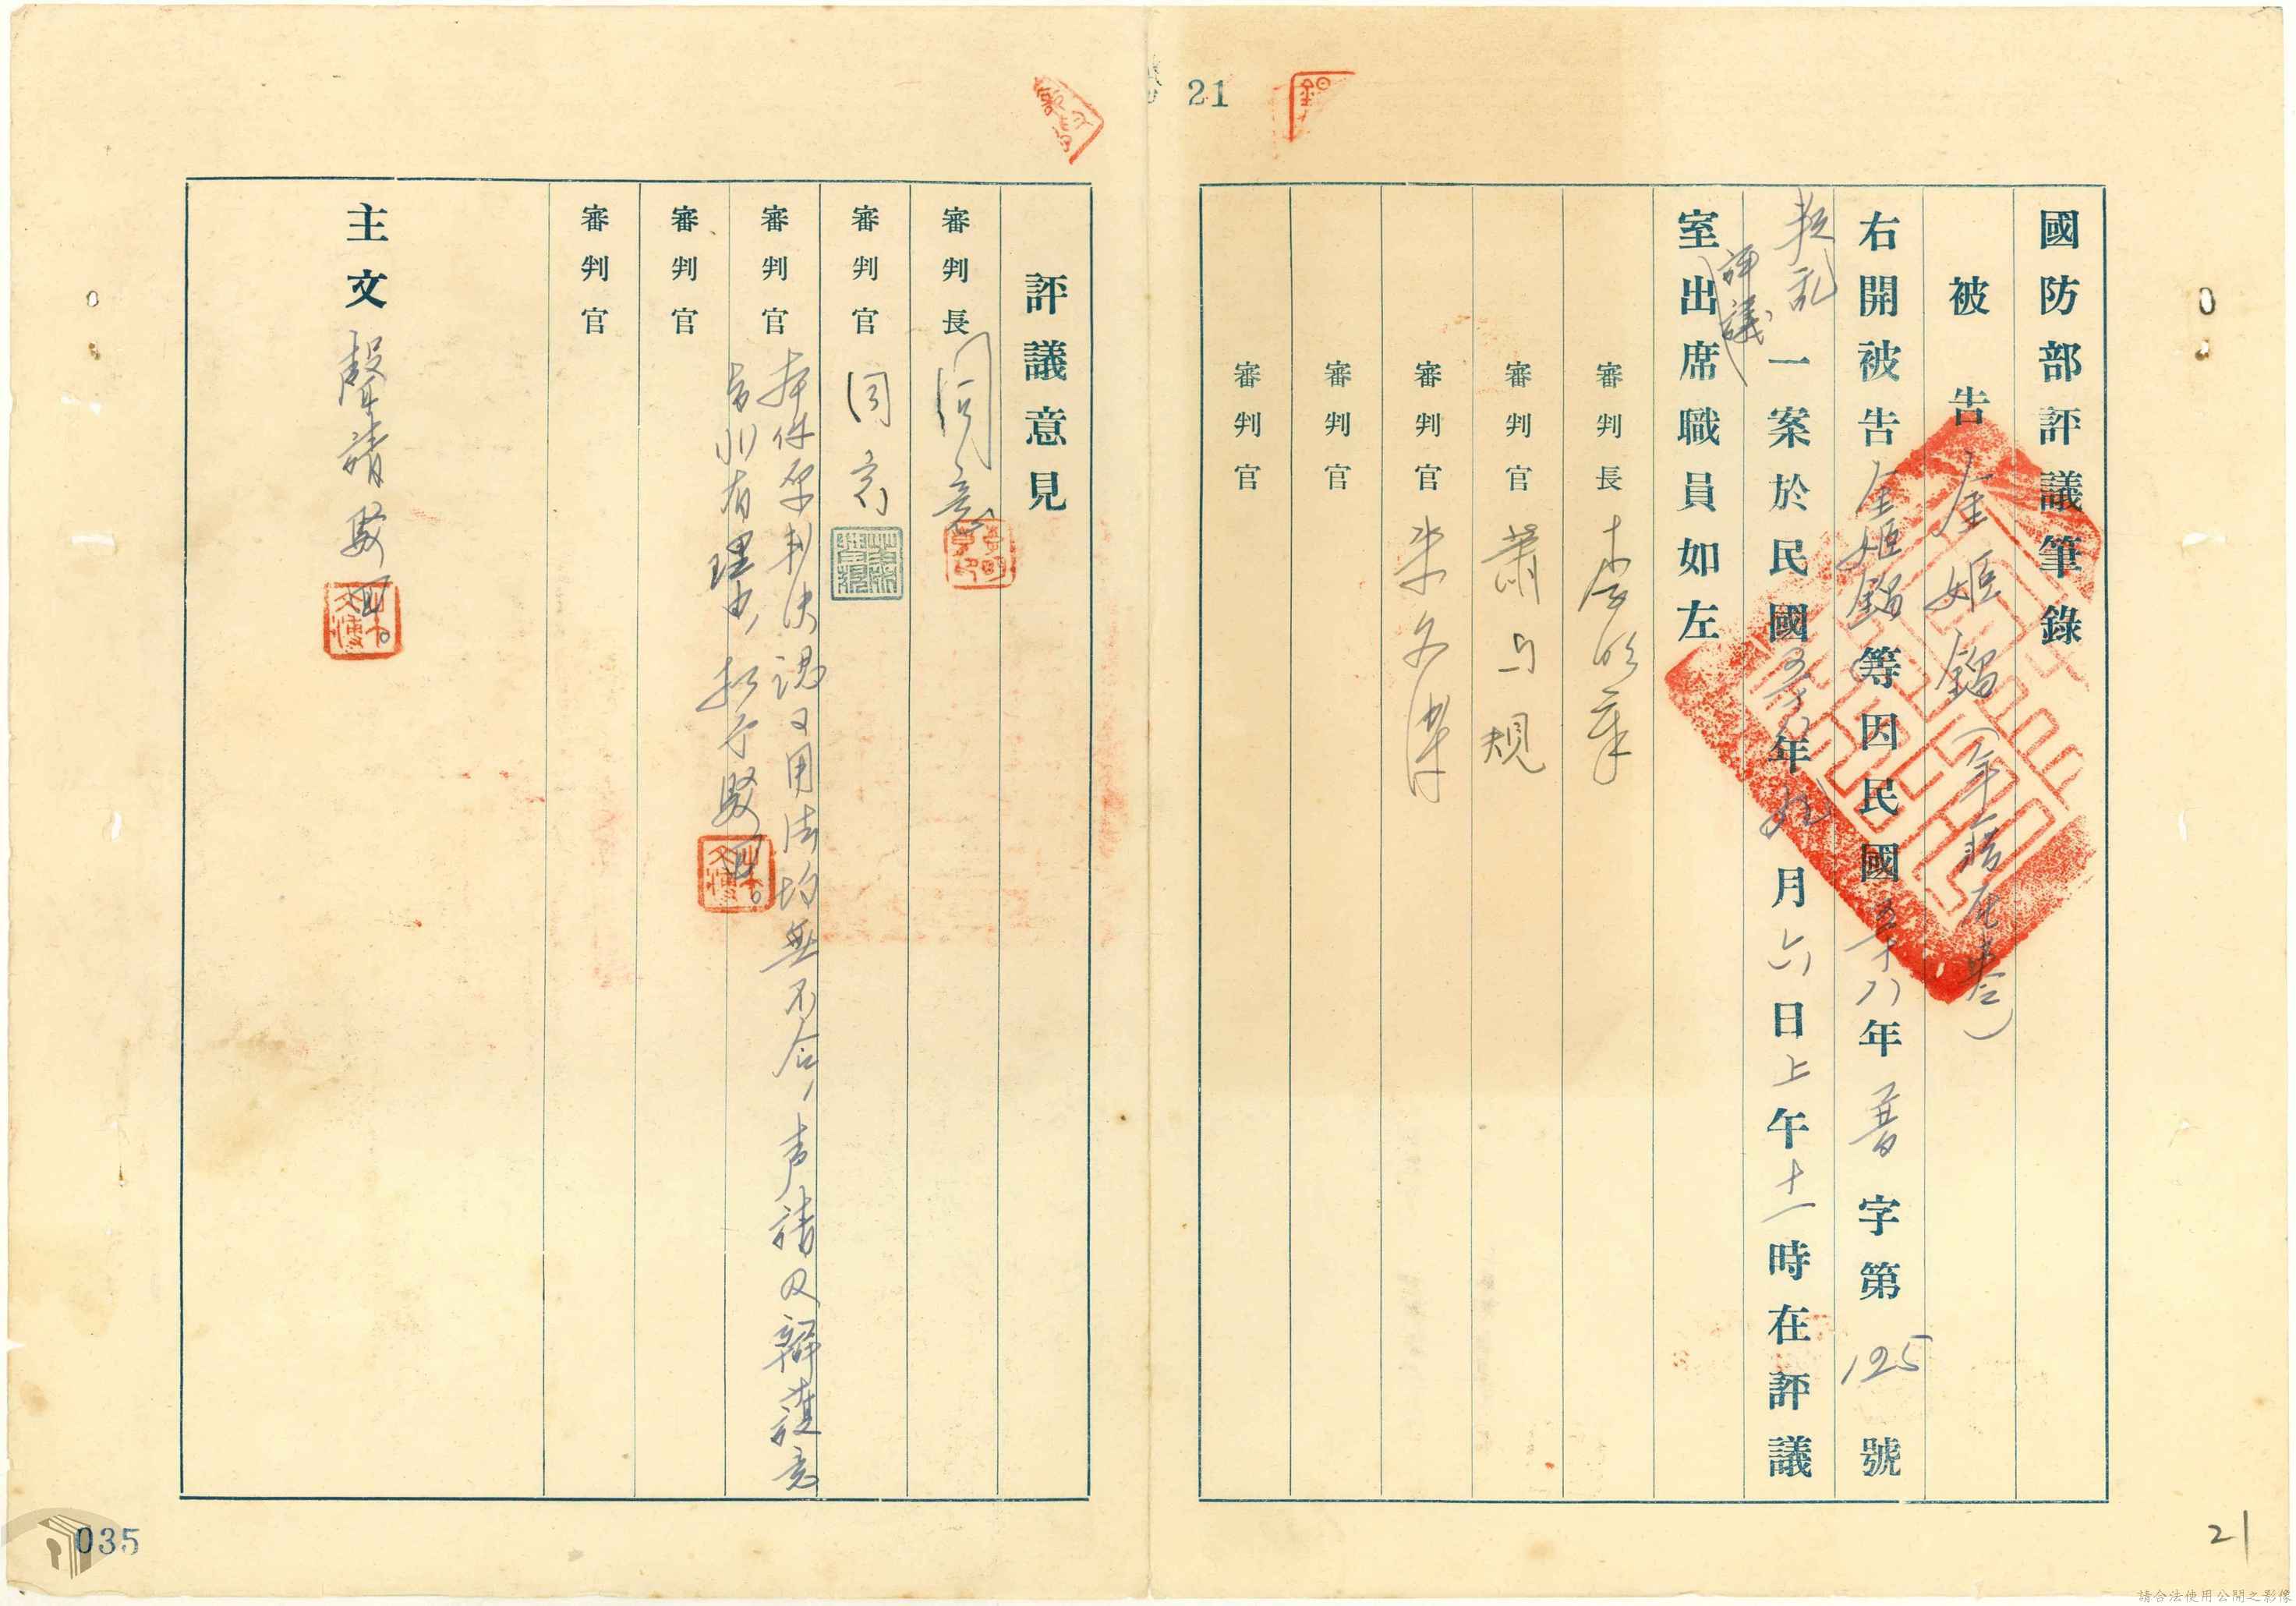 21
國防部評議筆錄
被告 金姬鎦(年籍在卷)
右開被告金姬鎦等因民國五十八年普字第125號
叛亂一案於民國五十八年九月六日上午十一時在評議
(評議)
室出席職員如左
審判長
審判官 蕭与規
審判官
審判官
審判官
評議意見
審判長 同意
審判官 同意
審判官 本件原判決認事用法均無不合,声請及辯護意
旨非有理由,擬予駁回。
審判官
審判官
主文 聲請駁回。
035
21
請合法使用公開之影像